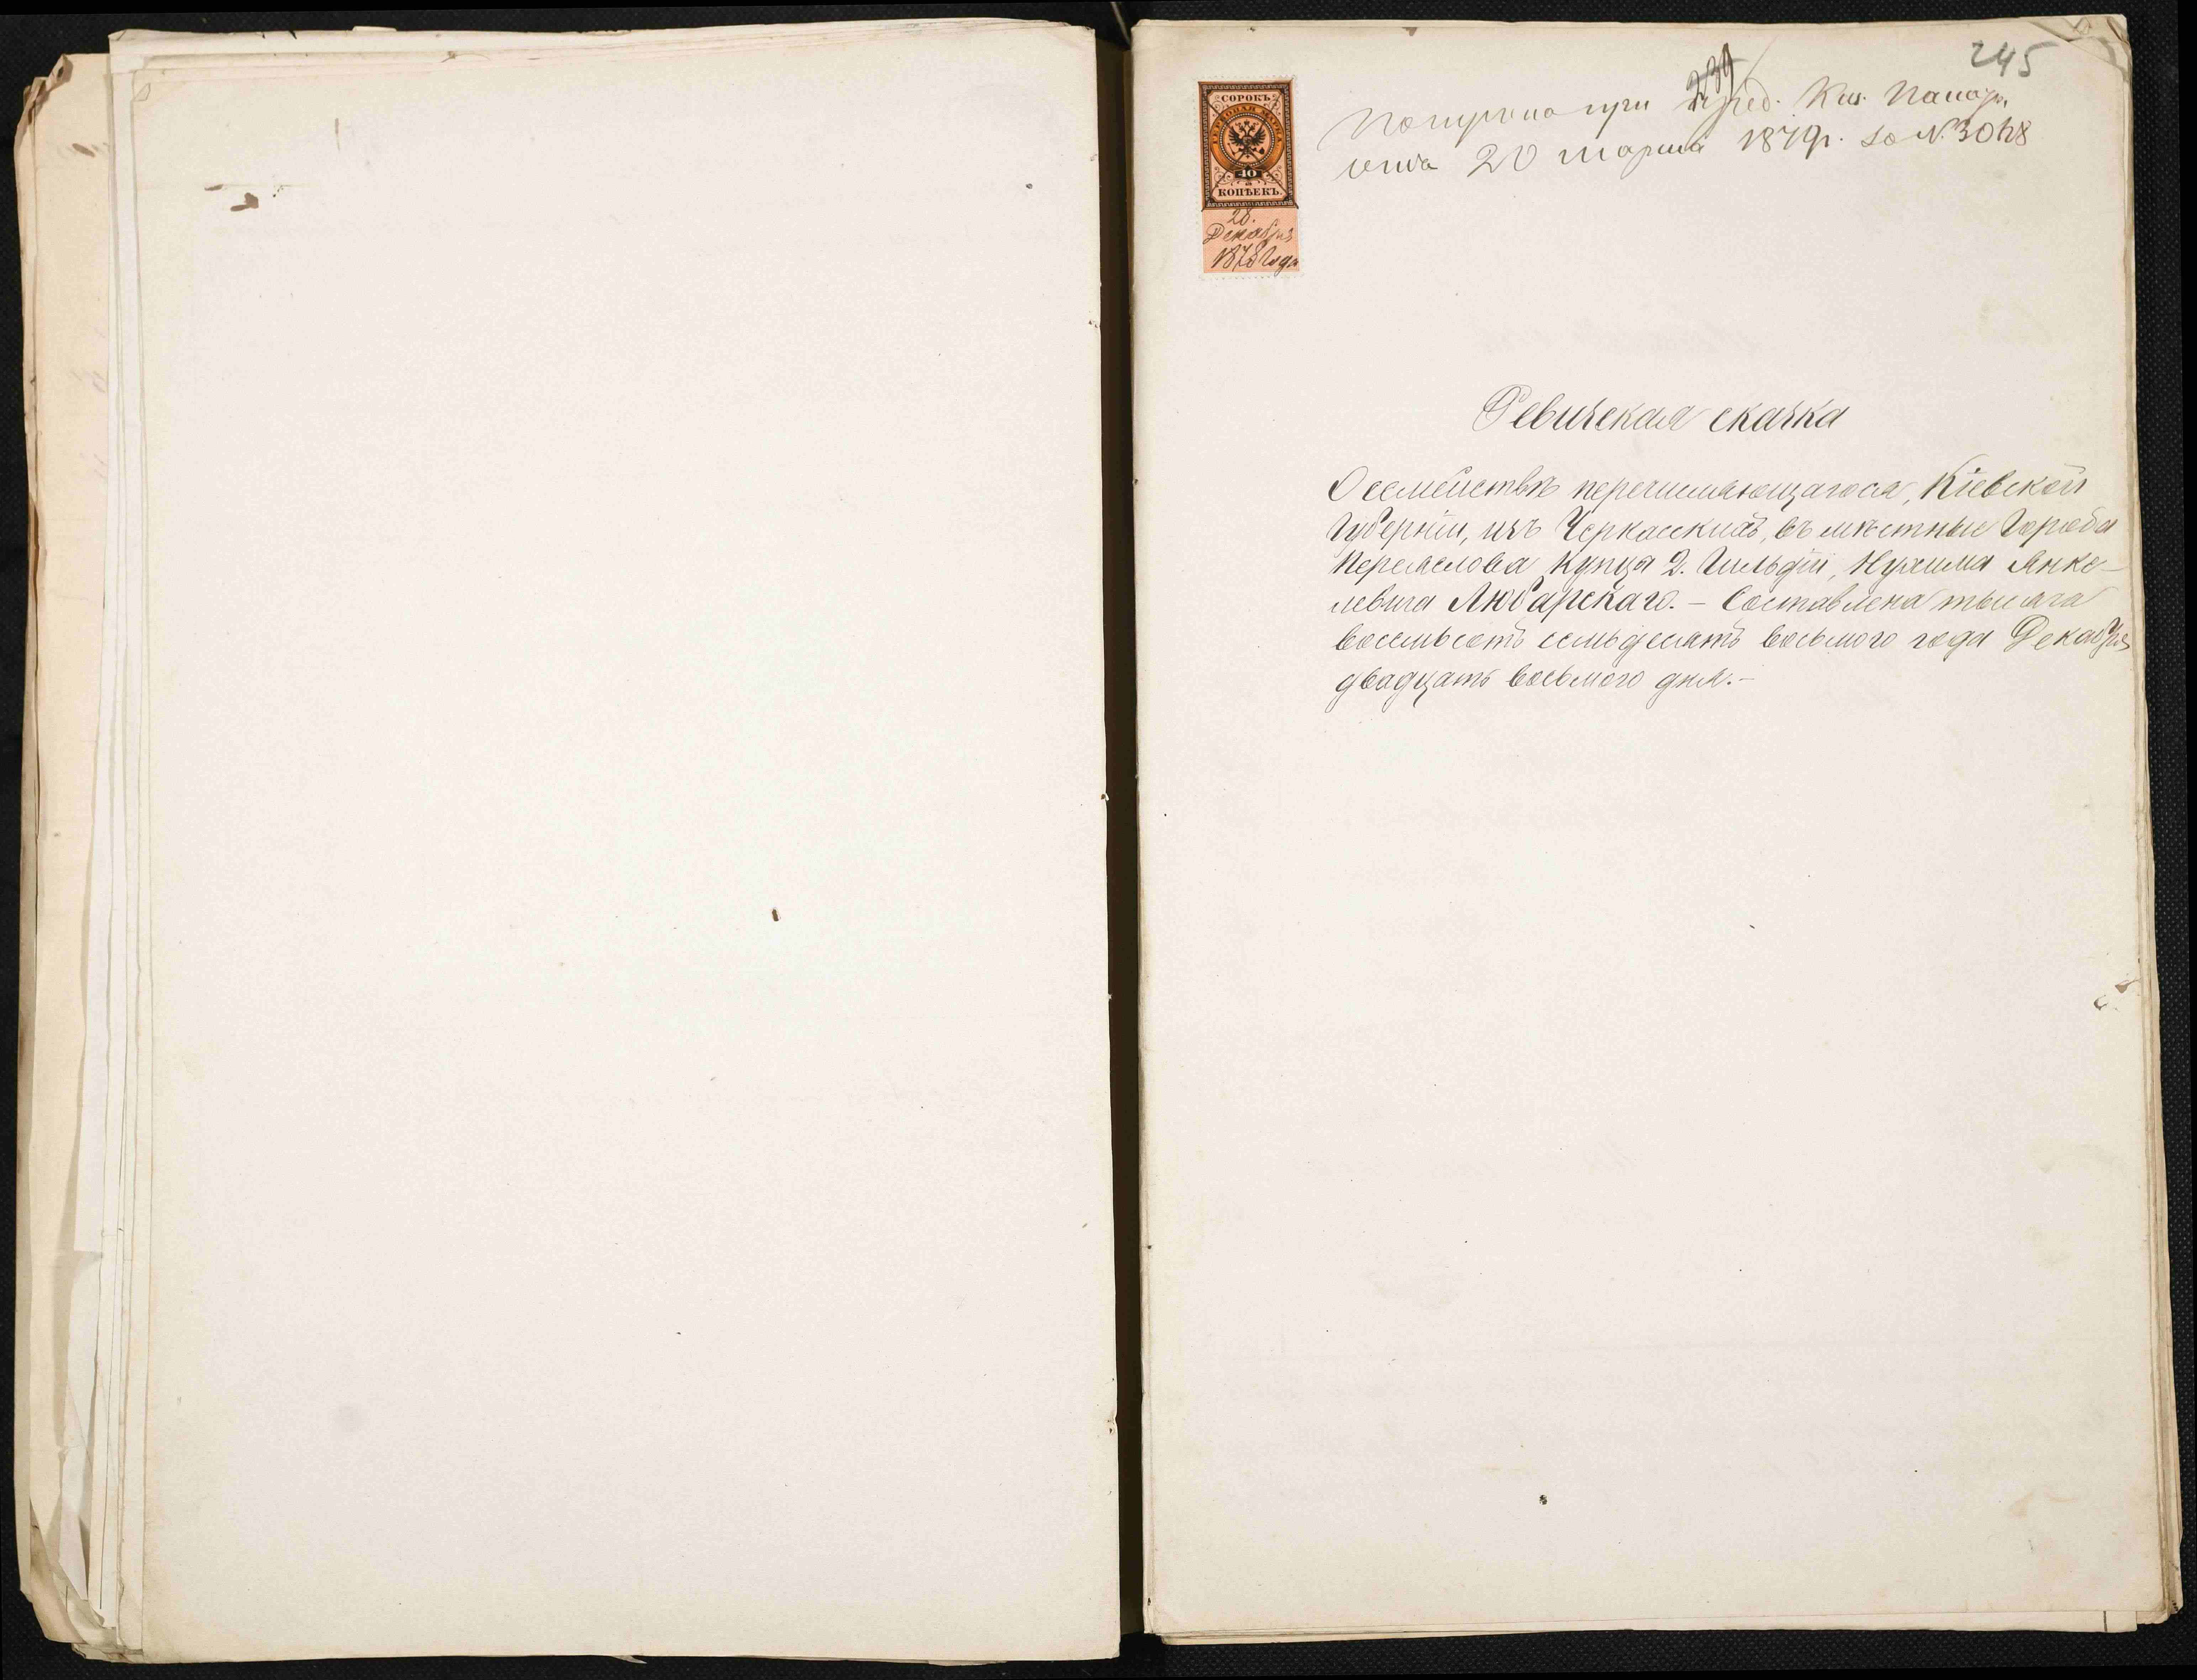 245
239
Получена при пред. Каз. Палаты
отъ 20 марта 1879 г. за № 3048
СОРОКЪ
ГЕРБОВАЯ МАРКА
40
КОПѢЕКЪ.
28.
Декабря
1878 Года
Ревизская сказка
О семействѣ перечисляющагося, Кіевской
Губерніи, изъ Черкасскихъ, въ мѣстные Города
Переяслова купца 2. Гильдіи, Нухима Янке-
левича Любарскаго. – Составлена тысяча
восемьсотъ семьдесятъ восьмого года Декабря
двадцать восьмого дня. –